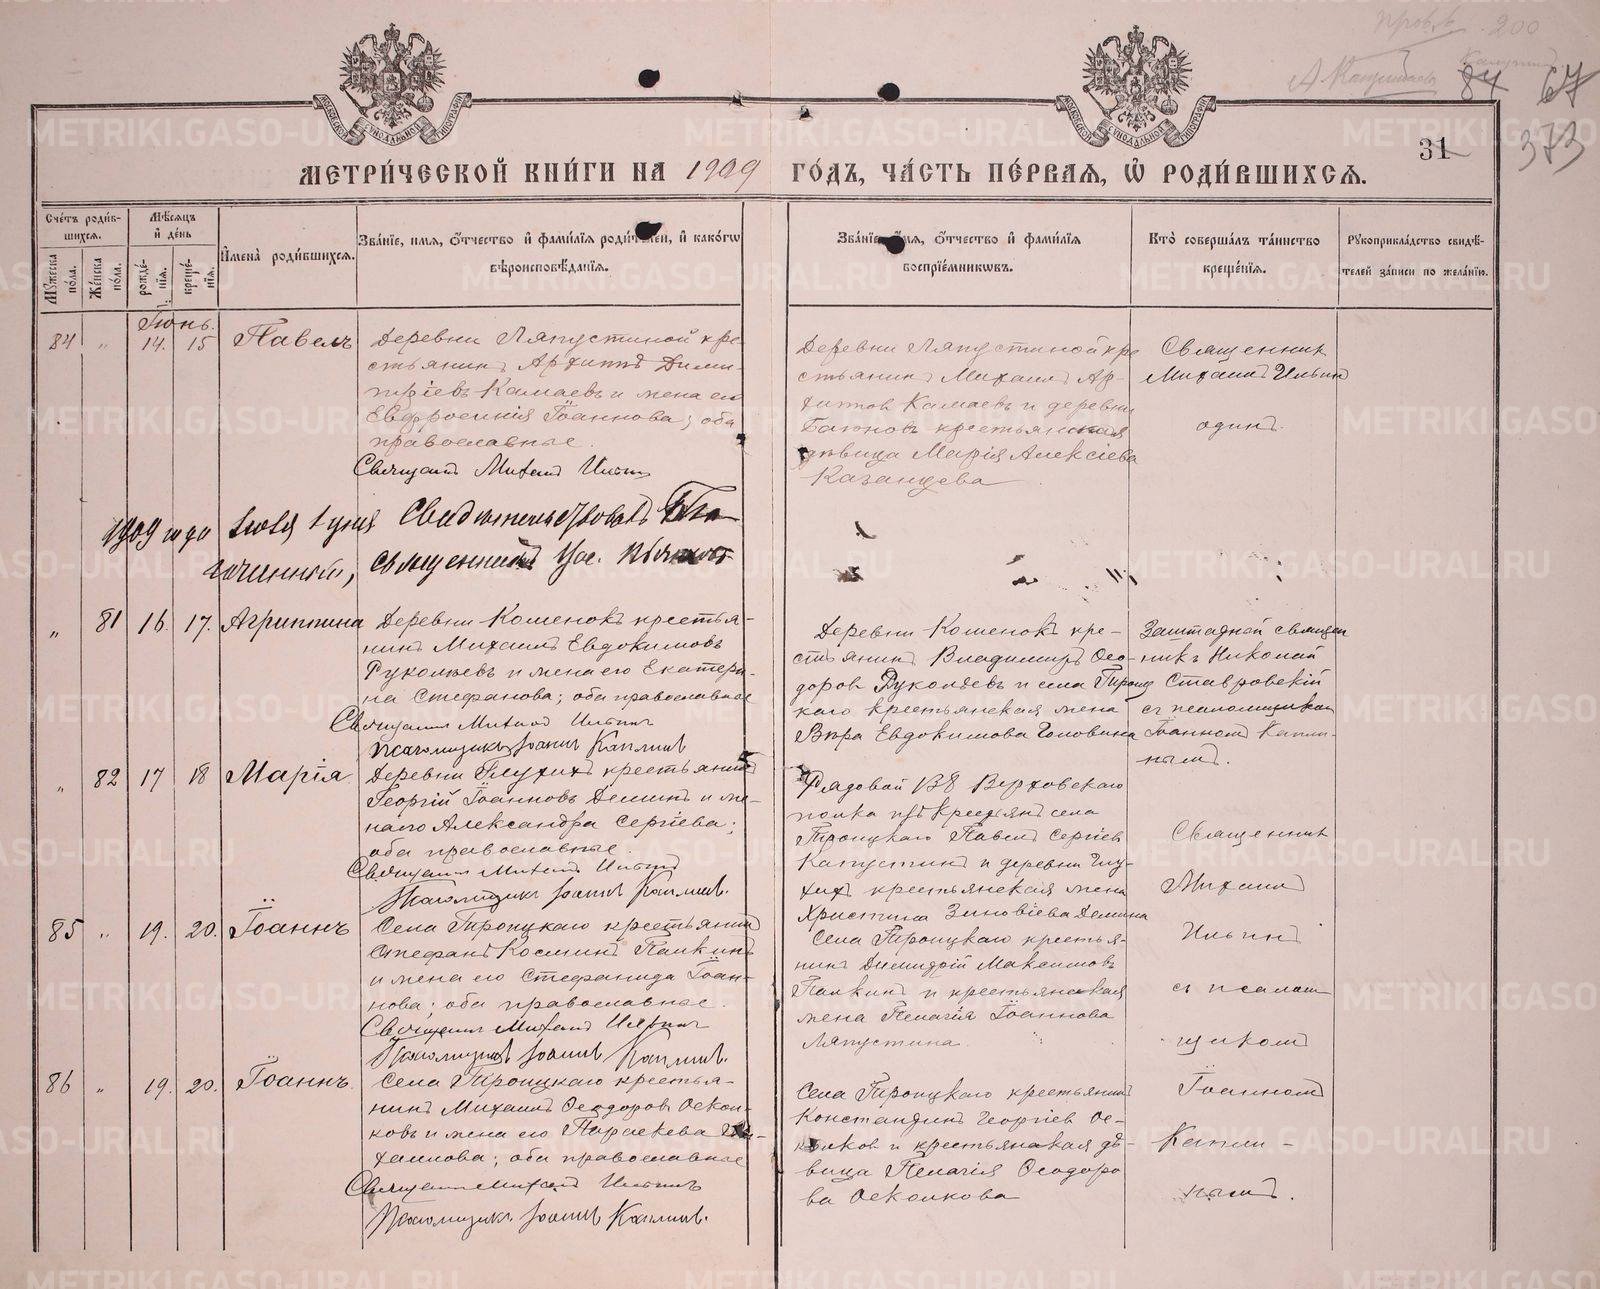 провѣр. 200
84 67
31
373
МЕТРИ́ЧЕСКОЙ КНИ́ГИ НА 1909 ГО́ДЪ, ЧА́СТЬ ПЕ́РВАЯ, Ѡ҆ РОДИ́ВШИХСЯ.
Сче́тъ роди́в-
шихся.
Мꙋ́жеска по́ла.
Же́нска по́ла.
Мѣ́сяцъ
и҆ де́нь
рожде́-
нїѧ.
креще́-
нїѧ.
И҆мена̀ роди́вшихся.
Зва́нїе, имѧ, ѻ҆́тчество и҆ фами́лїѧ роди́телей, и҆ како́гѡ
вѣроисповѣ́данїѧ.
Зва́нїе, и҆́мѧ, ѻ҆́тчество и҆ фами́лїѧ
воспрїе́мникѡвъ.
Кто̀ соверша́лъ та́инство
креще́нїѧ.
Рꙋкоприкла́дство свидѣ́-
телей за́писи по жела́нїю.
Іюнь.
84 " 14. 15 Павелъ
Деревни Ляпустиной кре
стьянинъ Архиппъ Дими-
тріевъ Камаевъ и жена его
Евфросинія Іоаннова; оба
православные.
Священникъ Михаилъ Ильинъ
Деревни Ляпустиной кре
стьянинъ Михаилъ Ар-
хиповъ Камаевъ и деревни
крестьянская
дѣвица Марія Алексіева
Казанцева
Священникъ
Михаилъ Ильинъ
одинъ.
1909 года Іюля 1 дня Свидѣтельствовалъ Бла
гочинный, священникъ
" 81 16. 17. Агриппина
Деревни Кошенокъ крестья-
нинъ Михаилъ Евдокимовъ
Руколѣевъ и жена его Екатери-
на Стефанова; оба православные
Священникъ Михаилъ Ильинъ
Псаломщикъ Іоаннъ Каплинъ
Деревни Кошенокъ кре-
стьянинъ Владимиръ Ѳео-
доровъ Руколѣевъ и села Троиц
каго крестьянская жена
Вѣра Евдокимова Головина
Заштатный священ
никъ Николай
Ставровскій
съ псаломщикомъ
Іоанномъ Капли-
нымъ.
" 82 17 18 Марія
Деревни Глухихъ крестьянинъ
Георгій Іоанновъ Деминъ и же-
на его Александра Сергіева;
оба православные.
Священникъ Михаилъ Ильинъ
Псаломщикъ Іоаннъ Каплинъ.
Рядовой Верховскаго
полка изъ крестьянъ села
Троицкаго Павелъ Сергіевъ
Капустинъ и деревни Глу-
хихъ крестьянская жена
Христина Зиновіева Демина
Священникъ
Михаилъ
Ильинъ
съ псалом
щикомъ
Іоанномъ
Капли-
нымъ.
85 " 19. 20. Іоаннъ
Села Троицкаго крестьянинъ
Стефанъ Косминъ Палкинъ
и жена его Стефанида Іоан-
нова; оба православные.
Священникъ Михаилъ Ильинъ
Псаломщикъ Іоаннъ Каплинъ.
Села Троицкаго крестья-
нинъ Димитрій Максимовъ
Палкинъ и крестьянская
жена Пелагія Іоаннова
Ляпустина.
86 " 19. 20. Іоаннъ
Села Троицкаго крестья-
нинъ Михаилъ Ѳеодоровъ Оскол-
ковъ и жена его Параскева Ми-
хаилова; оба православные
Священникъ Михаилъ Ильинъ
Псаломщикъ Іоаннъ Каплинъ.
Села Троицкаго крестьянинъ
Константинъ Георгіевъ Ос-
колковъ и крестьянская дѣ-
вица Пелагія Ѳеодоро
ва Осколкова
METRIKI.GASO-URAL.RU